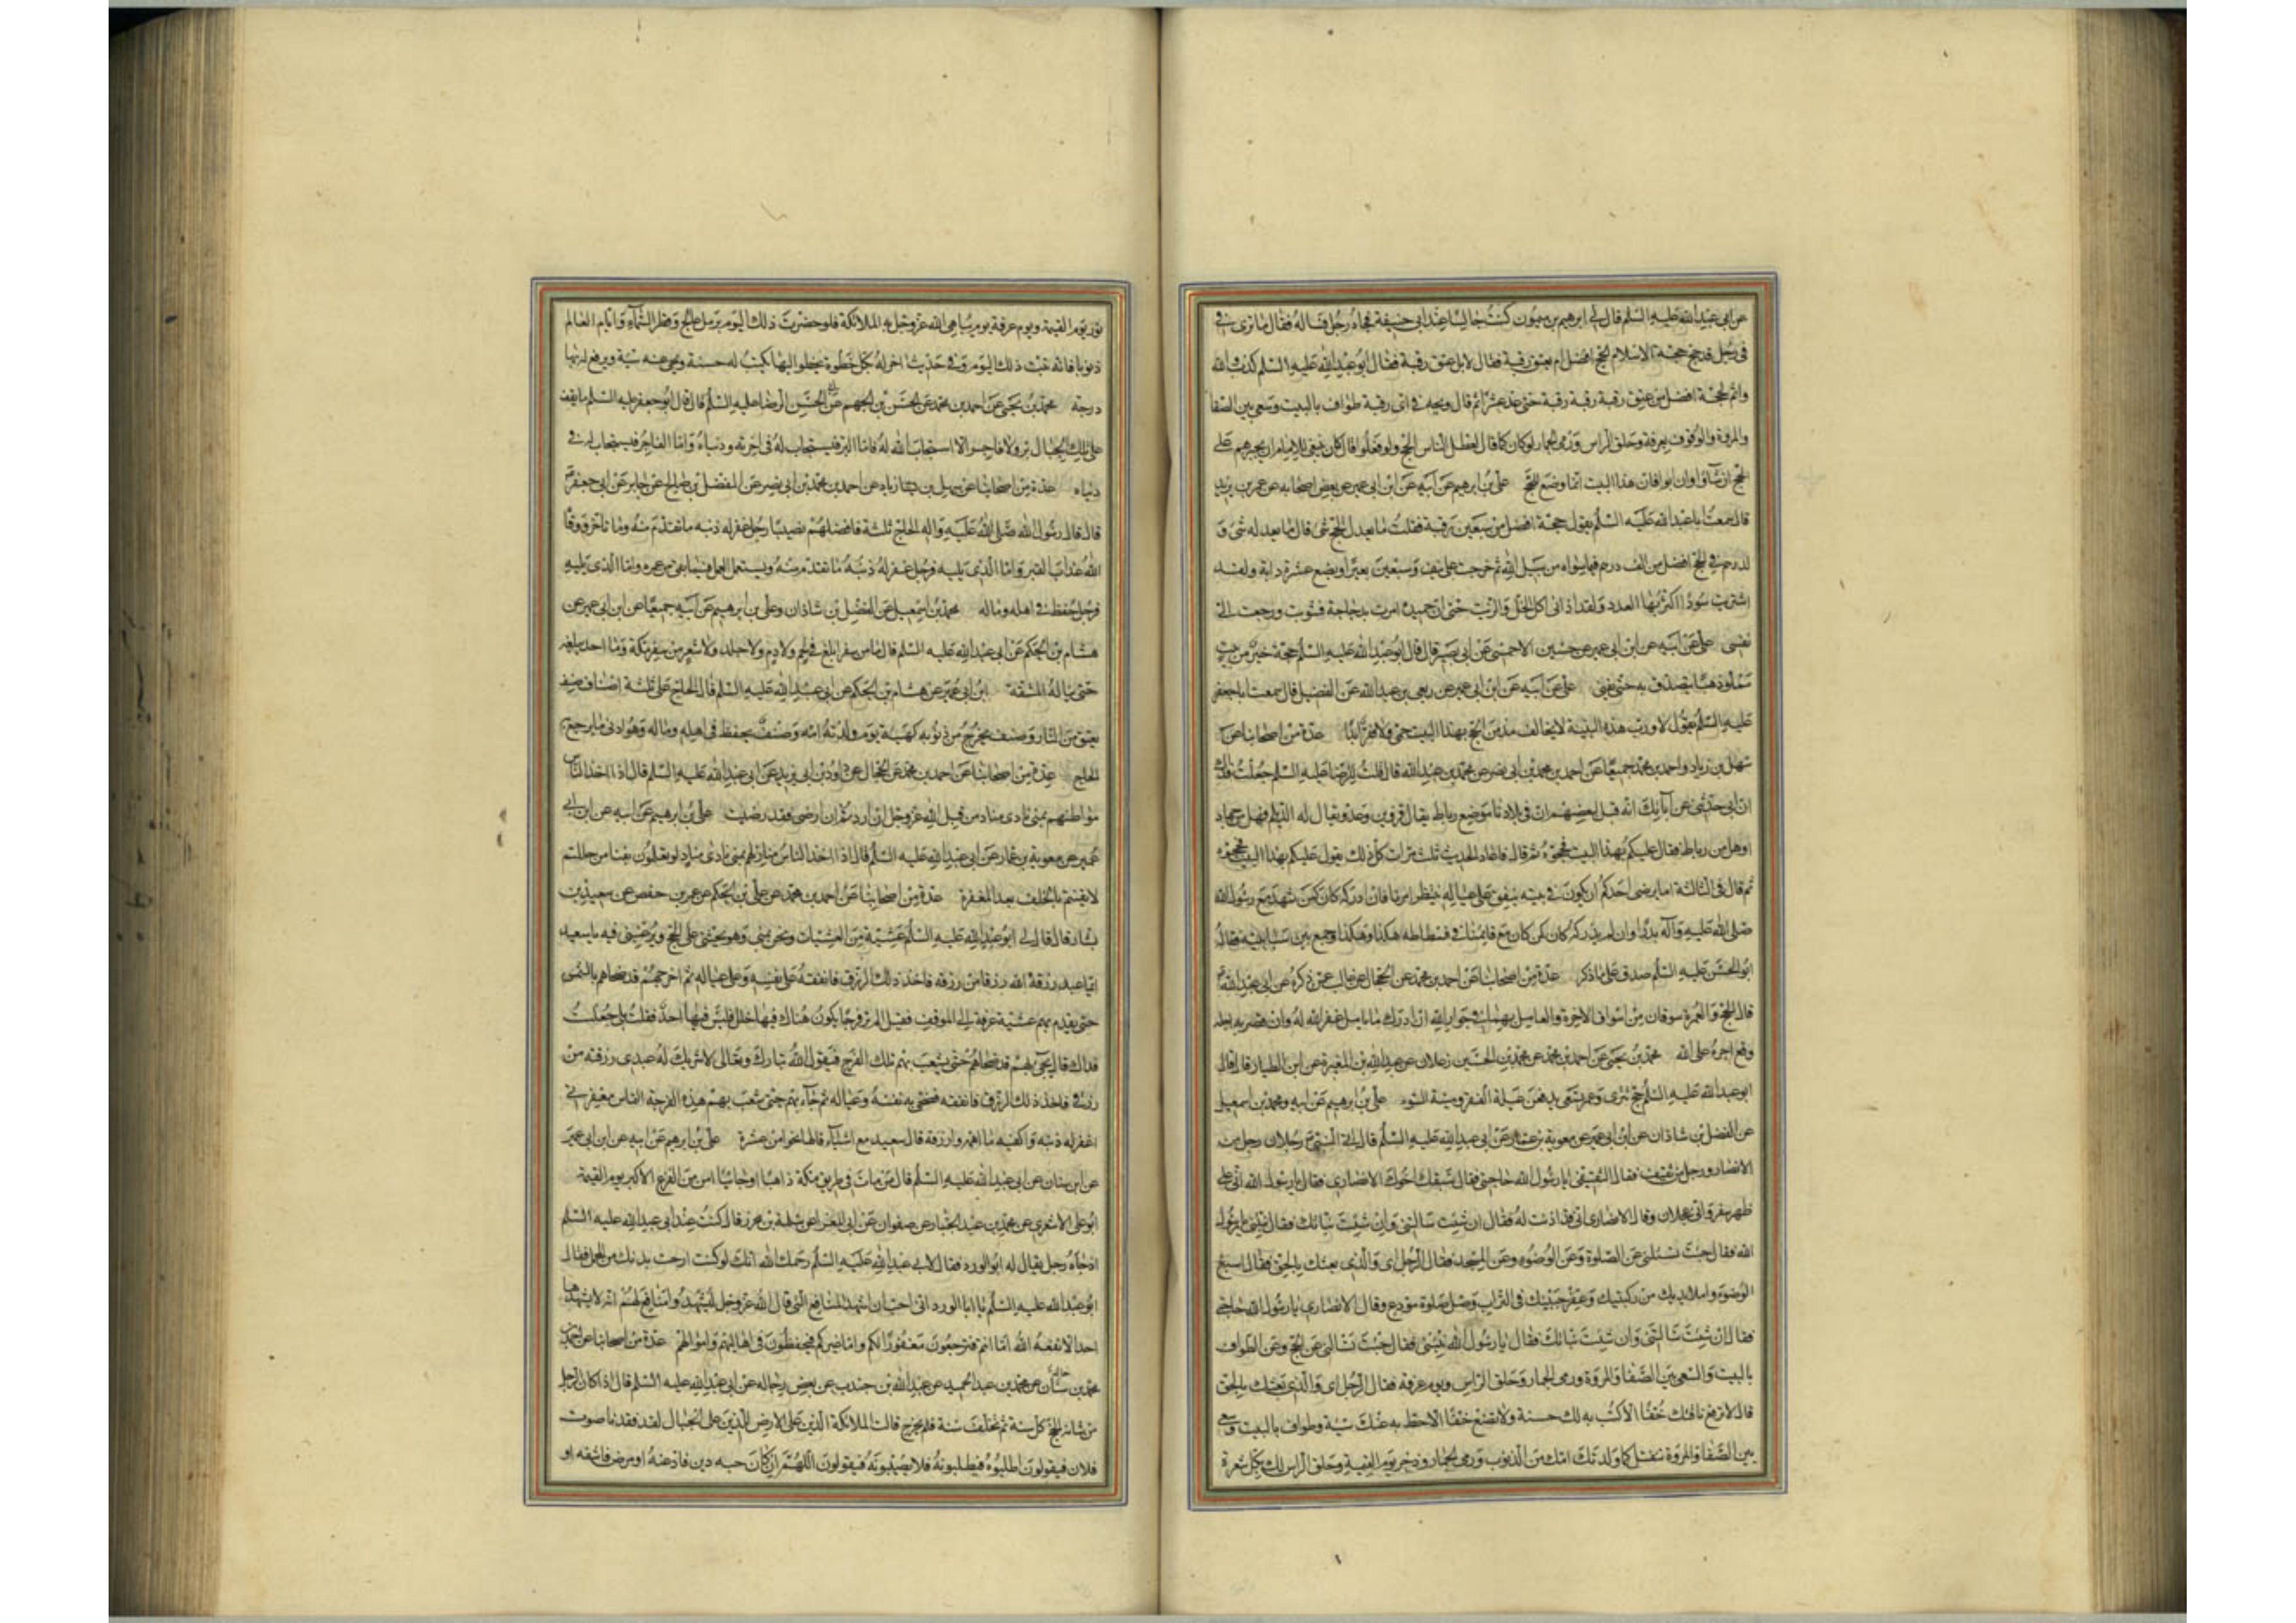 عن ابي عبد الله عليه السلم قال لي ابرهيم بن ميمون كنت جالسا عند ابي حنيفة فجاءه رجل فساله فقال ما ترى في
في رجل قد حج حجة الاسلام الحج افضل ام يعتق رقبة فقال لا بل عتق رقبة فقال ابو عبد الله عليه السلم كذب والله
واثم لحجة افضل من عتق رقبة ورقبة ورقبة حتى عد عشرا ثم قال ويحه في اي رقبة طواف بالبيت وسعي بين الصفا
والمروة والوقوف بعرفة وحلق الراس ورمي الجمار لو كان كما قال لعطل الناس الحج ولو فعلوا كان ينبغي للامام ان يجبرهم على
الحج ان شاؤا وان ابوا فان هذا البيت انما وضع للحج علي بن ابرهيم عن ابيه عن ابن ابي عمير عن بعض اصحابه عن عمر بن يزيد
قال سمعت ابا عبد الله عليه السلم يقول حجة افضل من سبعين رقبة فقلت ما يعدل الحج شئ قال ما يعدله شئ و
لدرهم في الحج افضل من الف درهم فيما سواه من سبيل الله ثم خرجت على نيف وسبعين بعيرا وبضع عشرة دابة ولقد
اشتريت سودا اكثر بها العدد ولقد اذاني اكل الخل والزيت حتى ان حميدة امرت بدجاجة فشويت ورجعت الي
نفسي علي عن ابيه عن ابن ابي عمير عن حسين الاحمسي عن ابي بصير قال قال ابو عبد الله عليه السلم حجة خير من بيت
مملو ذهبا يتصدق به حتى يفنى علي عن ابيه عن ابن ابي عمير عن ربعي بن عبد الله عن الفضيل قال سمعت ابا جعفر
عليه السلم يقول لا ورب هذه البنية لا يخالف مدمن الحج بهذا البيت حمى ولا فقر ابدا عدة من اصحابنا عن
سهل بن زياد واحمد بن محمد جميعا عن احمد بن محمد بن ابي نصر عن محمد بن عبد الله قال قلت للرضا عليه السلم جعلت فداك
ان ابي حدثني عن آبائك انه قيل لبعضهم ان في بلادنا موضع رباط يقال له قزوين وعدو يقال له الديلم فهل من جهاد
او هل من رباط فقال عليكم بهذا البيت فحجوه ثم قال فاعاد الحديث ثلث مرات كل ذلك يقول عليكم بهذا البيت فحجوه
ثم قال في الثالثة اما يرضى احدكم ان يكون في بيته ينفق على عياله ينتظر امرنا فان ادركه كان كمن شهد مع رسول الله
صلى الله عليه وآله بدرا وان لم يدركه كان كمن كان مع قائمنا في فسطاطه هكذا وهكذا وجمع بين سبابتيه فقال
ابو الحسن عليه السلم صدق على ما ذكر عدة من اصحابنا عن احمد بن محمد عن الحجال عن غالب عمن ذكره عن ابي عبد الله
قال الحج والعمرة سوقان من اسواق الاخرة والعامل بهما في جوار الله ان ادرك ما يامل غفر الله له وان قصر به اجله
وقع اجره على الله محمد بن يحيى عن احمد بن محمد عن محمد بن الحسين زعلان عن عبد الله بن المغيرة عن ابن الطيار قال قال
ابو عبد الله عليه السلم حجج تترى وعمر تسعى يدفعن عيلة الفقر وميتة السوء علي بن ابرهيم عن ابيه ومحمد بن اسمعيل
عن الفضل بن شاذان عن ابن ابي عمير عن معوية بن عمار عن ابي عبد الله عليه السلم قال اتى النبي رجلان رجل من
الانصار ورجل من ثقيف فقال الثقيفي يا رسول الله حاجتي فقال سبقك اخوك الانصاري فقال يا رسول الله اني على
ظهر سفر واني عجلان وقال الانصاري اني قد اذنت له فقال ان شئت سالتني وان شئت نباتك فقال نبئني يا رسول
الله فقال جئت تسئلني عن الصلوة وعن الوضوء وعن المسجد فقال الرجل اي والذي بعثك بالحق فقال اسبغ
الوضوء واملا يديك من ركبتيك وعفر جبينك في التراب وصل صلوة مودع وقال الانصاري يا رسول الله حاجتي
فقال ان شئت سالتني وان شئت نباتك فقال يا رسول الله نبئني فقال جئت تسالني عن الحج وعن الطواف
بالبيت والسعي بين الصفا والمروة ورمي الجمار وحلق الراس ويوم عرفة فقال الرجل اي والذي بعثك بالحق
قال لا ترفع ناقتك خفا الا كتب به لك حسنة ولا تضع خفا الا حط به عنك سيئة وطواف بالبيت وسعي
بين الصفا والمروة تنفتل كما ولدتك امك من الذنوب ورمي الجمار ذخر يوم القيمة وحلق الراس لك بكل شعرة
نور يوم القيمة ويوم عرفة يوم يباهي الله عز وجل به الملائكة فلو حضرت ذلك اليوم برمل عالج وقطر السماء وايام العالم
ذنوبا فانه تبت ذلك اليوم وفي حديث اخر له بكل خطوة يخطو اليها يكتب له حسنة ويمحى عنه سيئة ويرفع له بها
درجة محمد بن يحيى عن احمد بن محمد عن الحسن بن الجهم عن ابي الحسن الرضا عليه السلم قال قال ابو جعفر عليه السلم ما يقف
على تلك الجبال بر ولا فاجر الا استجاب الله له فاما البر فيستجاب له في اخرته ودنياه واما الفاجر فيستجاب له في
دنياه عدة من اصحابنا عن سهل بن زياد عن احمد بن محمد بن ابي نصر عن المفضل بن صالح عن جابر عن ابي جعفر
قال قال رسول الله صلى الله عليه واله الحاج ثلثة فافضلهم نصيبا رجل غفر له ذنبه ما تقدم منه وما تاخر ووقاه
الله عذاب القبر واما الذي يليه فرجل غفر له ذنبه ما تقدم منه ويستانف العمل فيما بقي من عمره واما الذي يليه
فرجل حفظ في اهله وماله محمد بن اسمعيل عن الفضل بن شاذان وعلي بن ابرهيم عن ابيه جميعا عن ابن ابي عمير عن
هشام بن الحكم عن ابي عبد الله عليه السلم قال ما من سفر ابلغ في لحم ولا دم ولا جلد ولا شعر من سفر مكة وما احد يبلغه
حتى يناله المشقة ابن ابي عمير عن هشام بن الحكم عن ابي عبد الله عليه السلم قال الحاج على ثلثة اصناف صنف
يعتق من النار وصنف يخرج من ذنوبه كهيئة يوم ولدته امه وصنف يحفظ في اهله وماله وهو ادنى ما يرجع به
الحاج عدة من اصحابنا عن احمد بن محمد عن الحجال عن داود بن ابي يزيد عن ابي عبد الله عليه السلم قال اذا اخذ الناس
مواطنهم بمنى نادى مناد من قبل الله عز وجل ان اردتم ان ارضى فقد رضيت علي بن ابرهيم عن ابيه عن ابن ابي
عمير عن معوية بن عمار عن ابي عبد الله عليه السلم قال اذا اخذ الناس منازلهم بمنى نادى مناد لو تعلمون بفناء من حللتم
لايقنتم بالخلف بعد المغفرة عدة من اصحابنا عن احمد بن محمد عن علي بن الحكم عن عمر بن حفص عن سعيد بن
يسار قال قال لي ابو عبد الله عليه السلم عشية من العشيات ونحن بمنى وهو يحثني على الحج ويرغبني فيه يا سعيد
ايما عبد رزقه الله رزقا من رزقه فاخذ ذلك الرزق فانفقه على نفسه وعلى عياله ثم اخرجهم قد ضحاهم بالشمس
حتى يقدم بهم عشية عرفة الى الموقف فيقيل الم تر فرجا يكون هناك فيها خلل فليس فيها احد فقلت بلى جعلت
فداك قال يجئ بهم قد ضحاهم حتى يشعب بهم تلك الفرج فيقول الله تبارك وتعالى لا شريك له عبدي رزقته من
رزقي فاخذ ذلك الرزق فانفقه فضحى به نفسه وعياله ثم جاء بهم حتى شعب بهم هذه الفرجة التماس مغفرتي
اغفر له ذنبه واكفيه ما اهمه وارزقه قال سعيد مع اشياء قالها نحوا من عشرة علي بن ابرهيم عن ابيه عن ابن ابي عمير
عن ابن سنان عن ابي عبد الله عليه السلم قال من مات في طريق مكة ذاهبا او جائيا امن من الفزع الاكبر يوم القيمة
ابو علي الاشعري عن محمد بن عبد الجبار عن صفوان عن ابي المغرا عن سلمة بن محرز قال كنت عند ابي عبد الله عليه السلم
اذ جاءه رجل يقال له ابو الورد فقال لابي عبد الله عليه السلم رحمك الله انك لو كنت ارحت بدنك من المحمل فقال
ابو عبد الله عليه السلم يا ابا الورد اني احب ان اشهد المنافع التي قال الله عز وجل ليشهدوا منافع لهم انه لا يشهدها
احد الا نفعه الله اما انتم فترجعون مغفورا لكم واما غيركم فيحفظون في اهاليهم واموالهم عدة من اصحابنا عن احمد بن
محمد بن سنان عن محمد بن عبد الحميد عن عبد الله بن جندب عن بعض رجاله عن ابي عبد الله عليه السلم قال اذا كان الرجل
من شانه الحج كل سنة ثم تخلف سنة فلم يخرج قالت الملائكة الذين على الارض للذين على الجبال لقد فقدنا صوت
فلان فيقولون اطلبوه فيطلبونه فلا يصيبونه فيقولون اللهم ان كان حبسه دين فاد عنه او مرض فاشفه او